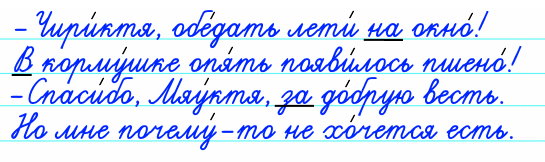 – Чири́ктя, обе́дать лети́ на окно́!
В корму́шке опя́ть появи́лось пшено́!
– Спаси́бо, Мяу́ктя, за до́брую весть.
Но мне почему́-то не хо́чется есть.